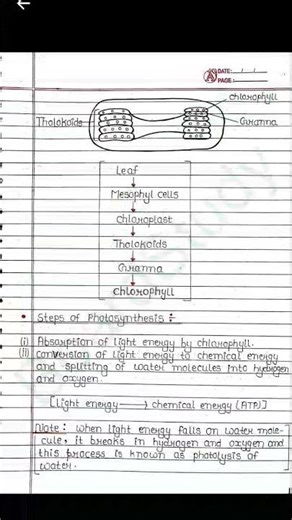 DATE: / /
PAGE:
chlorophyll
Tholokoids
Granna
Leaf
Mesophyl cells
Chloroplast
Tholokoids
Granna
Chlorophyll
• Steps of Photosynthesis :-
(i) Absorption of light energy by chlorophyll.
(ii) conversion of light energy to chemical energy
and splitting of water molecules into hydrogen
and oxygen.
[Light energy → chemical energy (ATP)]
Note : When light energy falls on water mole-
cule, it breaks in hydrogen and oxygen and
this process is known as photolysis of
water.